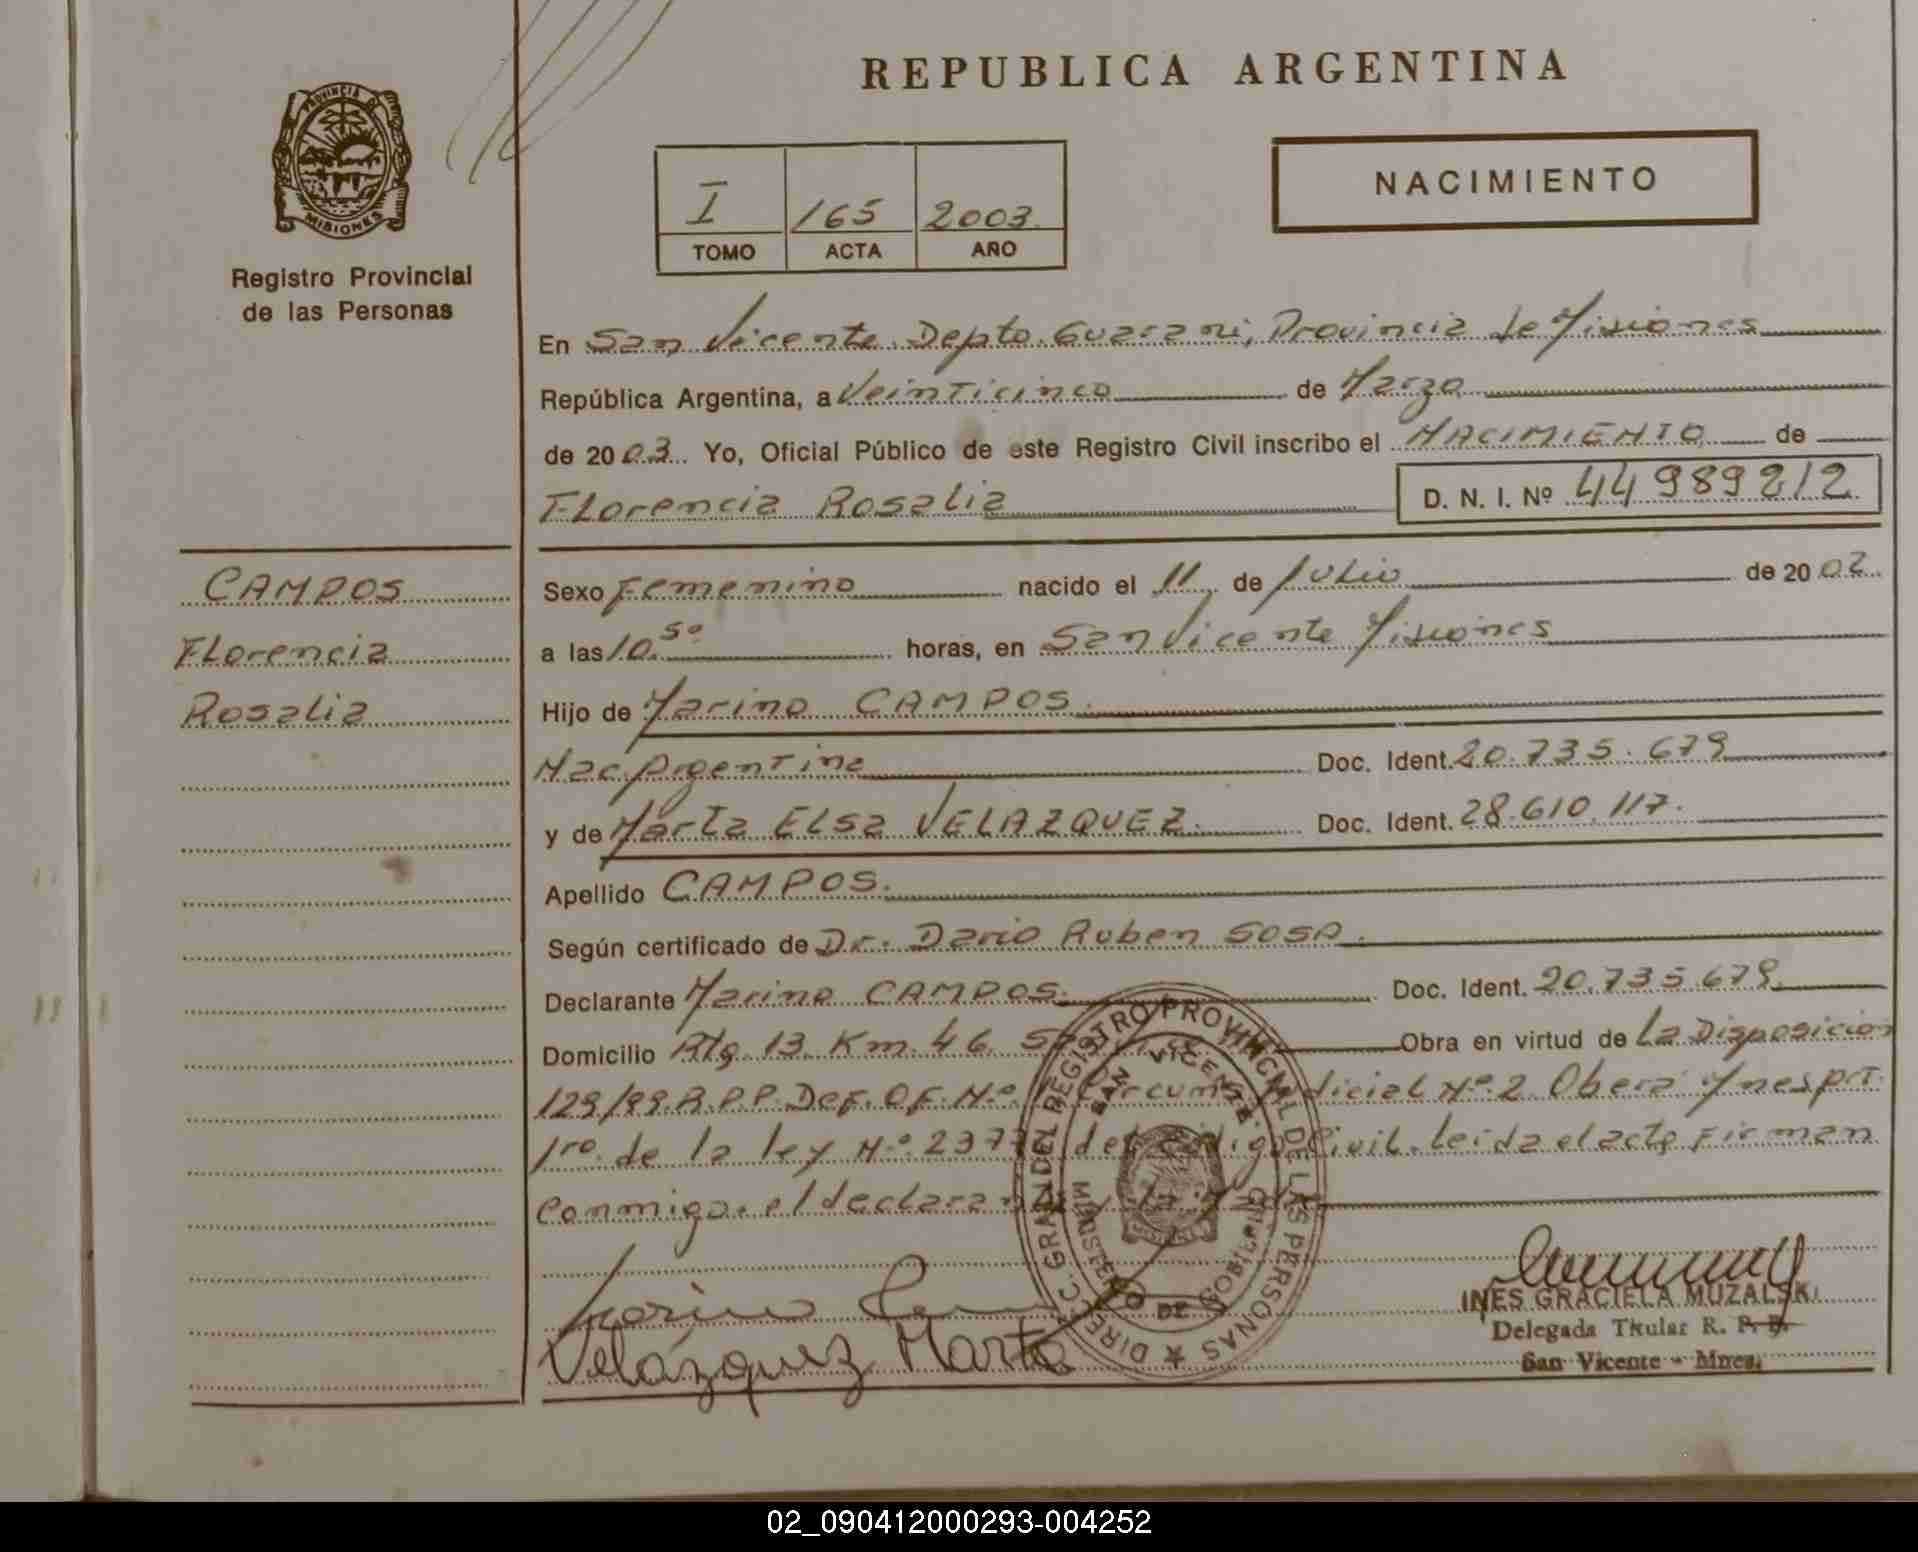 REPUBLICA ARGENTINA
PROVINCIA DE
MISIONES
Registro Provincial
de las Personas
I 165 2003.
TOMO ACTA AÑO
NACIMIENTO
En San Vicente Depto. Guarani, Provincia de Misiones
República Argentina, a Veinticinco de Marzo
de 2003. Yo, Oficial Público de este Registro Civil inscribo el NACIMIENTO de
Florencia Rosalia D. N. I. Nº 44989212
CAMPOS
Florencia
Rosalia
Sexo Femenino nacido el 11 de Julio de 2002.
a las 10.50 horas, en San Vicente Misiones
Hijo de Marino CAMPOS.
Nac. Argentina Doc. Ident. 20.735.679
y de Marta Elsa VELAZQUEZ. Doc. Ident. 28.610.117.
Apellido CAMPOS.
Según certificado de Dr. Dario Ruben SOSA.
Declarante Marino CAMPOS. Doc. Ident. 20.735.679.
Domicilio Rta. 13. Km. 46. Obra en virtud de La Disposición
129/99.R.P.P. Def. Of. Nº Circum. Judicial Nº 2 Obera
1ro. de la ley Nº del Código Civil. Leida el acta, Firman
Conmigo. el declarante
Marino
Velázquez Marta
DIRECC. GRAL. DEL REGISTRO PROVINCIAL DE LAS PERSONAS
SAN VICENTE
MINISTERIO DE GOBIERNO
INES GRACIELA MUZALSKI
Delegada Titular R. P. P.
San Vicente - Mnes.
02_090412000293-004252